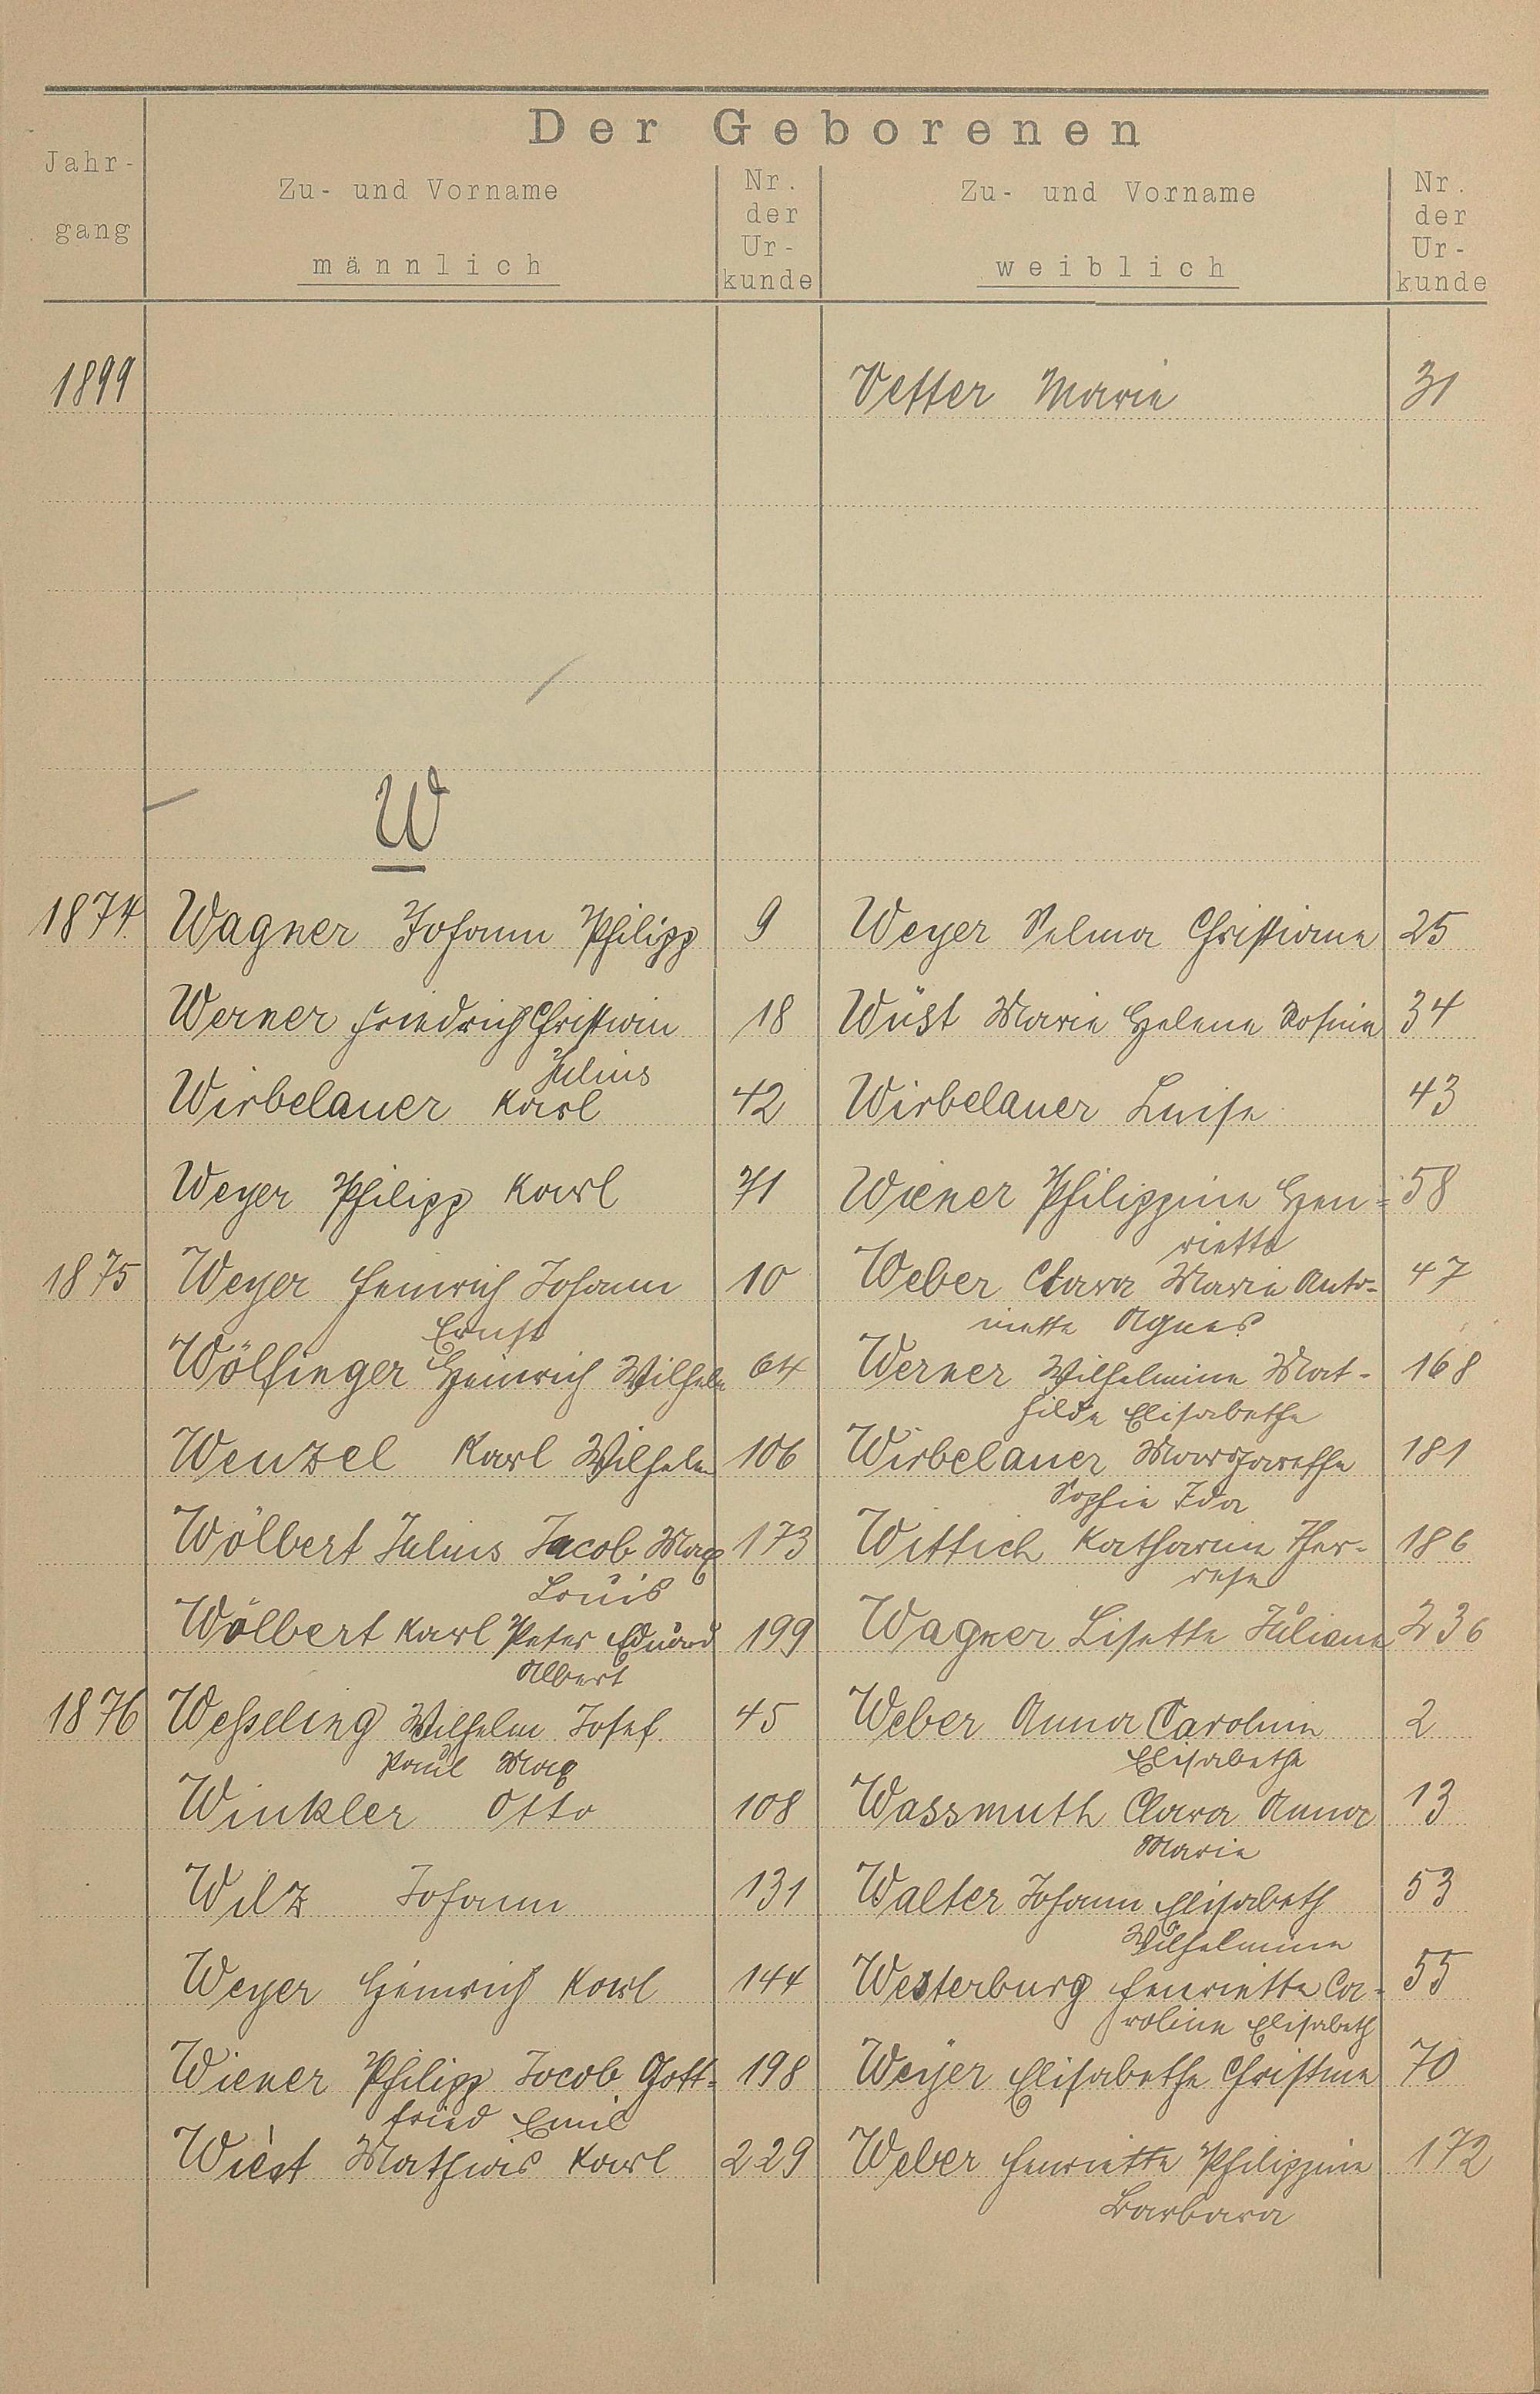 Der Geborenen
Jahr-
gang
Zu- und Vorname
männlich
Nr.
der
Ur-
kunde
Zu- und Vorname
weiblich
Nr.
der
Ur-
kunde
1899 Vetter Marie 31
W
1874 Wagner Johann Philipp 9 Weyer Selma Christiane 25
Werner Friedrich Christian 18 Wüst Marie Helene Rosine 34
Julius
Wirbelauer Karl 42 Wirbelauer Luise 43
Weyer Philipp Karl 71 Wiener Philippine Hen= 58
riette
1875 Weyer Heinrich Johann 10 Weber Clara Marie Anto- 47
Ernst niette Agnes
Wölfinger Heinrich Wilhelm 64 Werner Wilhelmine Mat- 168
hilde Elisabethe
Wenzel Karl Wilhelm 106 Wirbelauer Margarethe 181
Sophie Ida
Wölbert Julius Jacob Max 173 Wittich Katharine Ther- 186
Louis rese
Wölbert Karl Peter Eduard 199 Wagner Lisette Juliane 236
Albert
1876 Weßeling Wilhelm Josef 45 Weber Anna Caroline 2
Paul Max Elisabethe
Winkler Otto 108 Wassmuth Clara Anna 13
Marie
Wilz Johann 131 Walter Johann Elisabeth 53
Wilhelmine
Weyer Heinrich Karl 144 Westerburg Henriette Ca- 55
roline Elisabeth
Wiener Philipp Jacob Gott= 198 Weyer Elisabethe Christine 70
fried Emil
Wiest Mathias Karl 229 Weber Henriette Philippine 172
Barbara